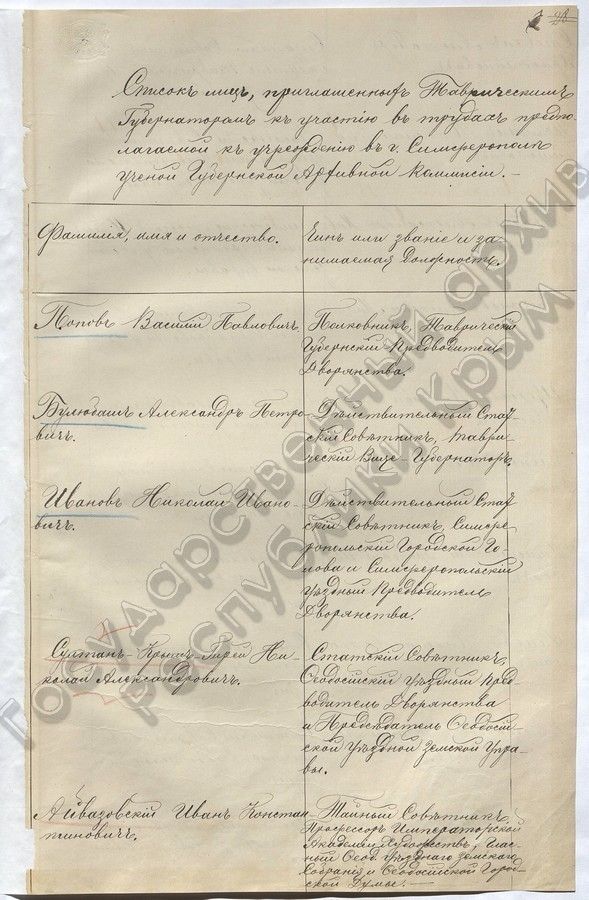 Списокъ лицъ, приглашенныхъ Таврическимъ
Губернаторомъ къ участію въ трудахъ предпо-
лагаемой къ учрежденію въ г. Симферополѣ
ученой Губернской Архивной Коммисіи. –
Фамилія, имя и отчество.
Чинъ или званіе и за-
нимаемая должность.
Поповъ Василій Павловичъ
Полковникъ, Таврическій
Губернскій Предводитель
Дворянства.
Булюбашъ Александръ Петро-
вичъ.
Дѣйствительный Стат-
скій Совѣтникъ, Таври-
ческій Вице-Губернаторъ.
Ивановъ Николай Ивано-
вичъ.
Дѣйствительный Стат-
скій Совѣтникъ, Симфе-
ропольскій Городской Го-
лова и Симферопольскій
Уѣздный Предводитель
Дворянства.
Султанъ-Крымъ-Гирей Ни-
колай Александровичъ.
Статскій Совѣтникъ,
Ѳеодосійскій Уѣздный Пред-
водитель Дворянства
и Предсѣдатель Ѳеодосій-
ской Уѣздной Земской Упра-
вы.
Айвазовскій Иванъ Констан-
тиновичъ.
Тайный Совѣтникъ,
Профессоръ Императорской
Академіи Художествъ, Глас-
ный Ѳеод. Уѣзднаго Земскаго
Собранія и Ѳеодосійской Город-
ской Думы. –
Государственный архив
Республики Крым